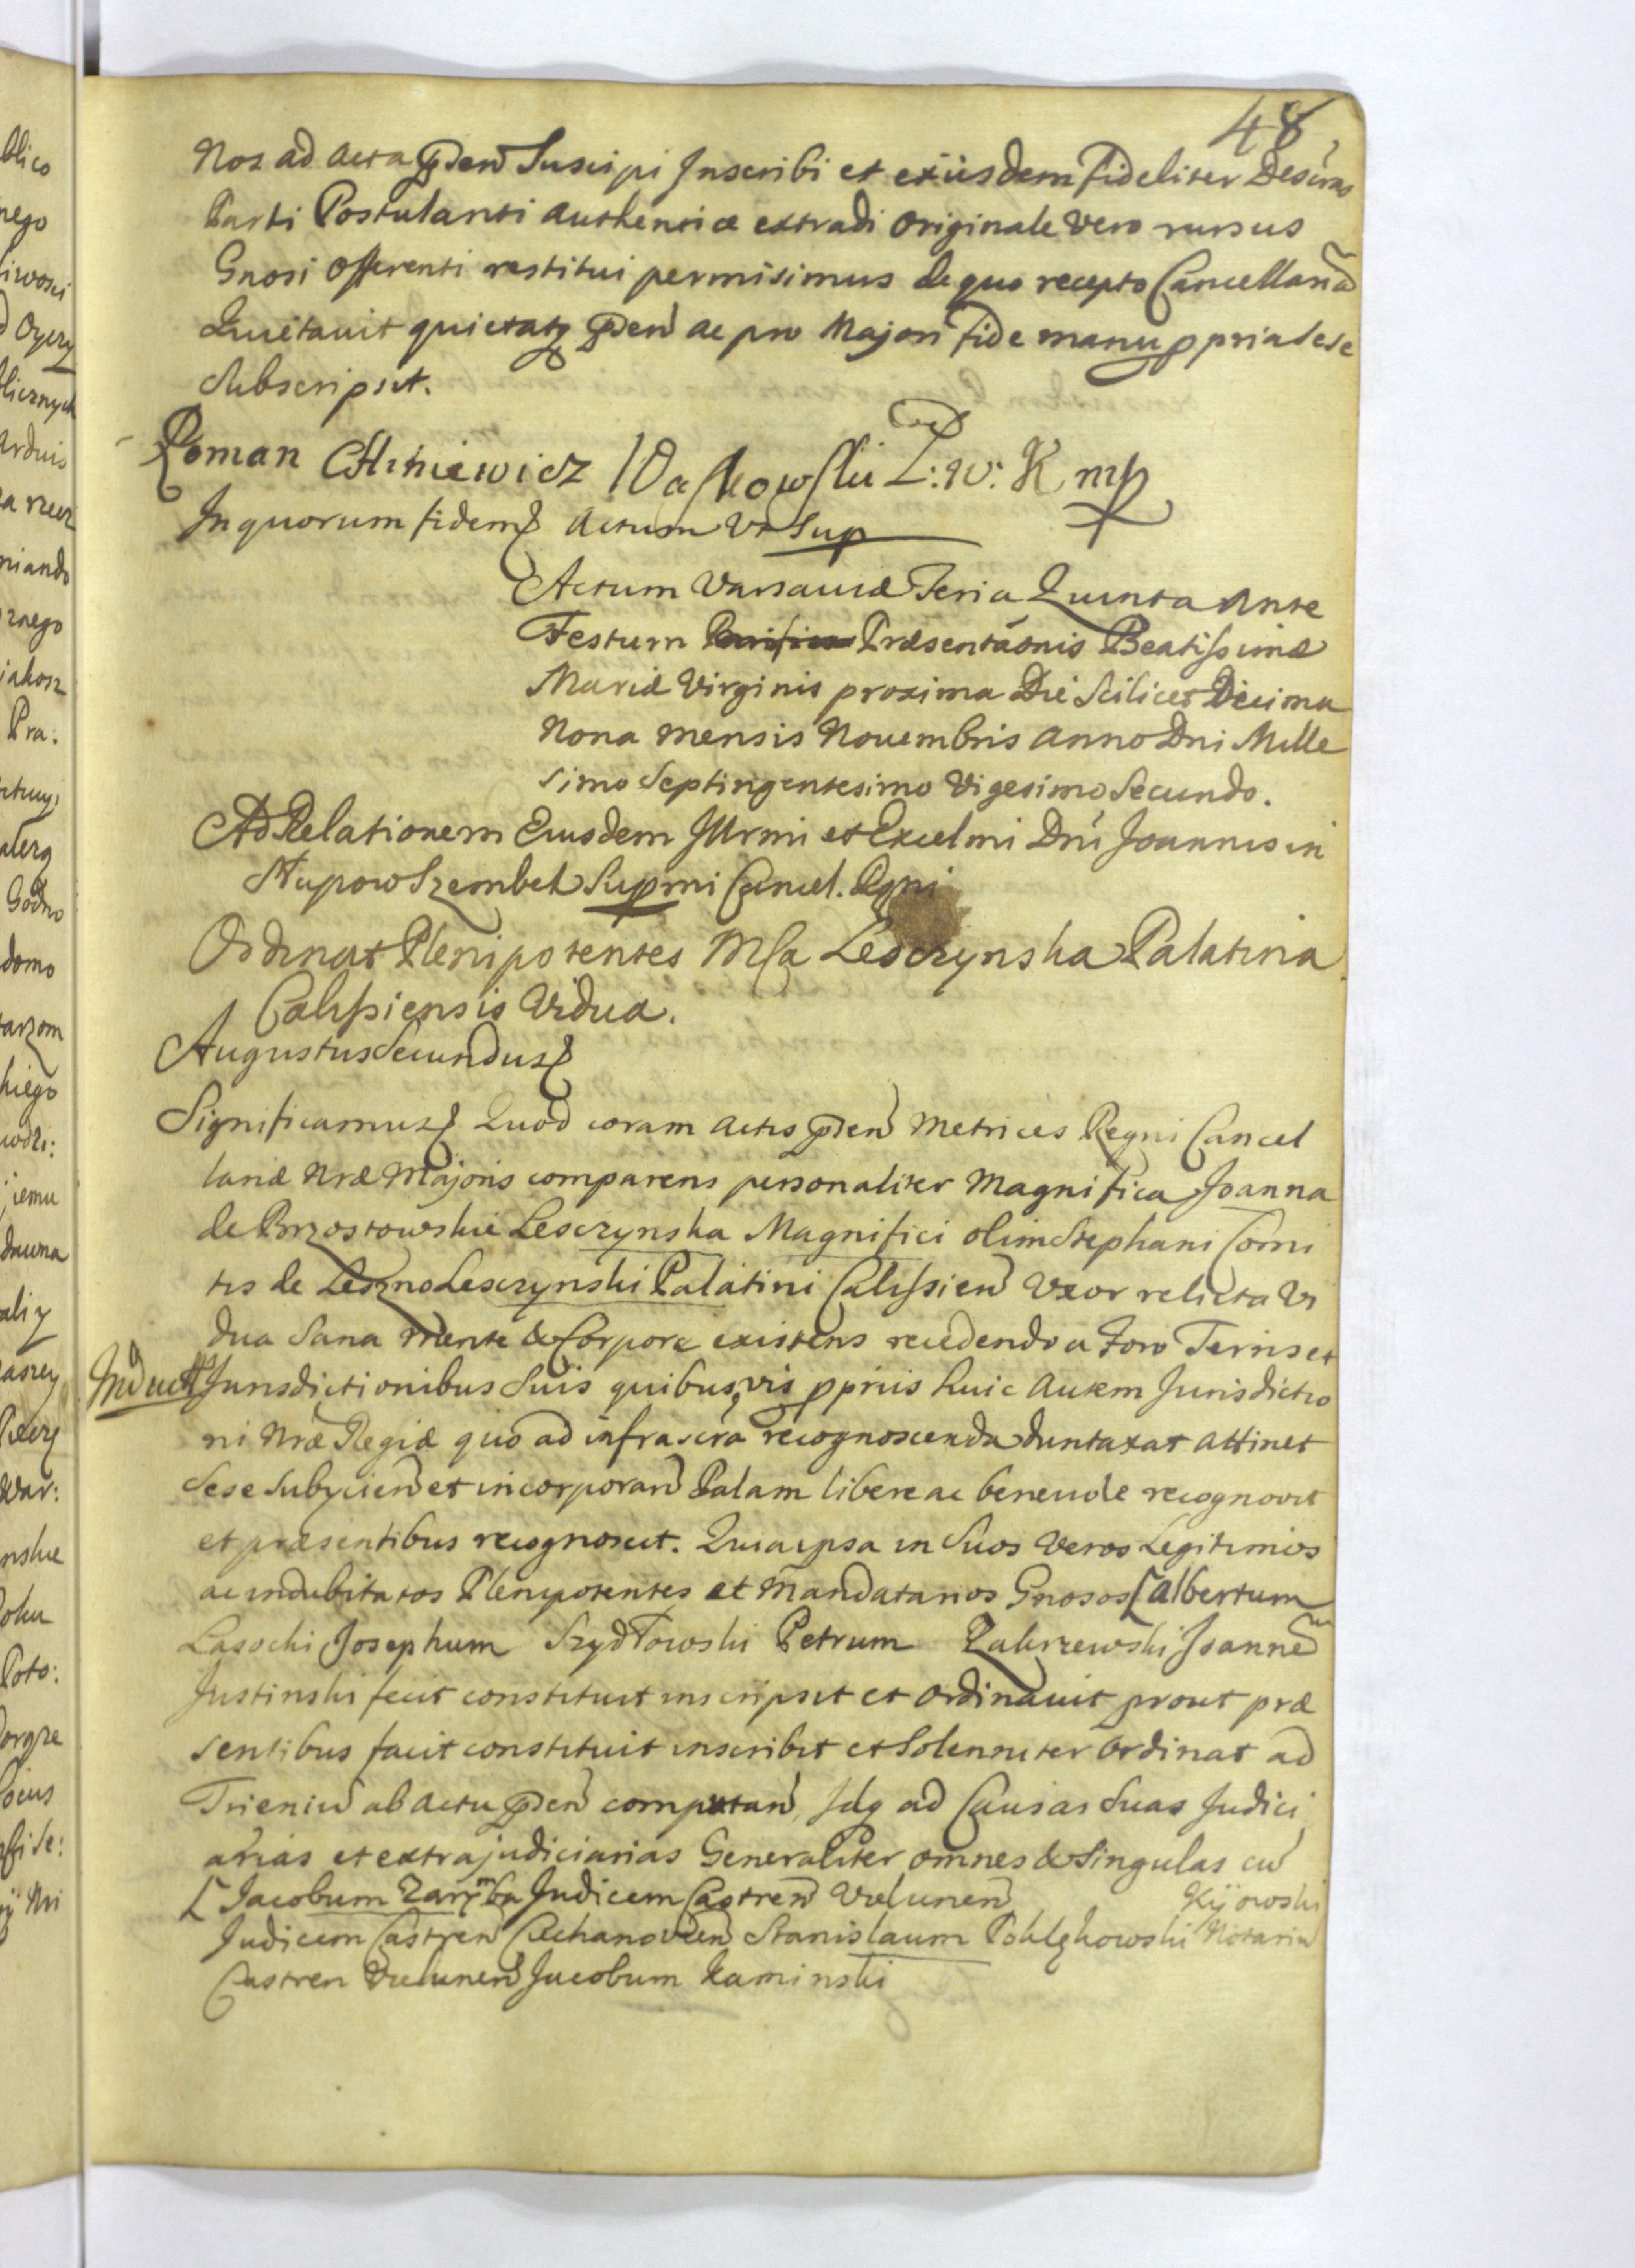 48
Nos ad acta pnden Suscipi Inscribi et exiisdem fideliter Descras
Parti Postulanti authenticæ extradi originale vero rursus
Gnosi Offerenti restitui permisimus de quo recepto Cancellariã
Quietavit quietatq pnden ac pro Majori fide manu ppria sese
Subscripsit.
Roman L: W: K mp
In quorum fidem Actum Ut Sup
Actum Varsaviæ Feria Quinta Ante
Festum Præsentãonis Beatissimæ
Mariæ Virginis proxima Die Scilicet Decima
Nona mensis Novembris anno Dni Mille
simo Septingentesimo Vigesimo Secundo.
Ad Relationem Eiusdem Illrmi et Excelmi Dni Joannis in
Słupow Szembek Supmi Cancel. Rgni
Ordinat Plenipotentes Mfca Lesczynska Palatina
Calissiensis Vidua.
Augustus Secundus
Significamus Quod coram actis pnden Metrices Regni Cancel
lariæ Nræ Majoris comparens personaliter Magnifica Joanna
de Brzostowskie Lesczynska Magnifici olim Stephani Comi
tis de Leszno Lesczynski Palatini Calissien Uxor relicta Vi
dua Sana mente & Corpore existens recedendo a Foro Terris et
Jurisdictionibus Suis quibusvis ppriis huic autem Jurisdictio
ni Nræ Regiæ quo ad infrascra recognoscenda duntaxat attinet
Sese Subyicien et incorporan Palam libere ac benevole recognovit
et præsentibus recognoscit. Quia ipsa in Suos Veros Legitimos
ac indubitatos Plenipotentes et Mandatarios Gnosos [Albertum
Lasocki Josephum Szydłowski Petrum Zakrzewski Joannem
Justinski fecit constituit inscripsit et Ordinavit prout præ
sentibus facit constituit inscribit et Solenniter Ordinat ad
Trieniũ ab actu pnden computan, Idq ad Causas Suas Judici
arias et extrajudiciarias Generaliter omnes & Singulas cũ
[Jacobum Zaremba Judicem Castren Vielunen Kijowski
Judicem Castren Ciechanovien Stanislaum Notariũ
Castren Vielunen Jacobum Kaminski